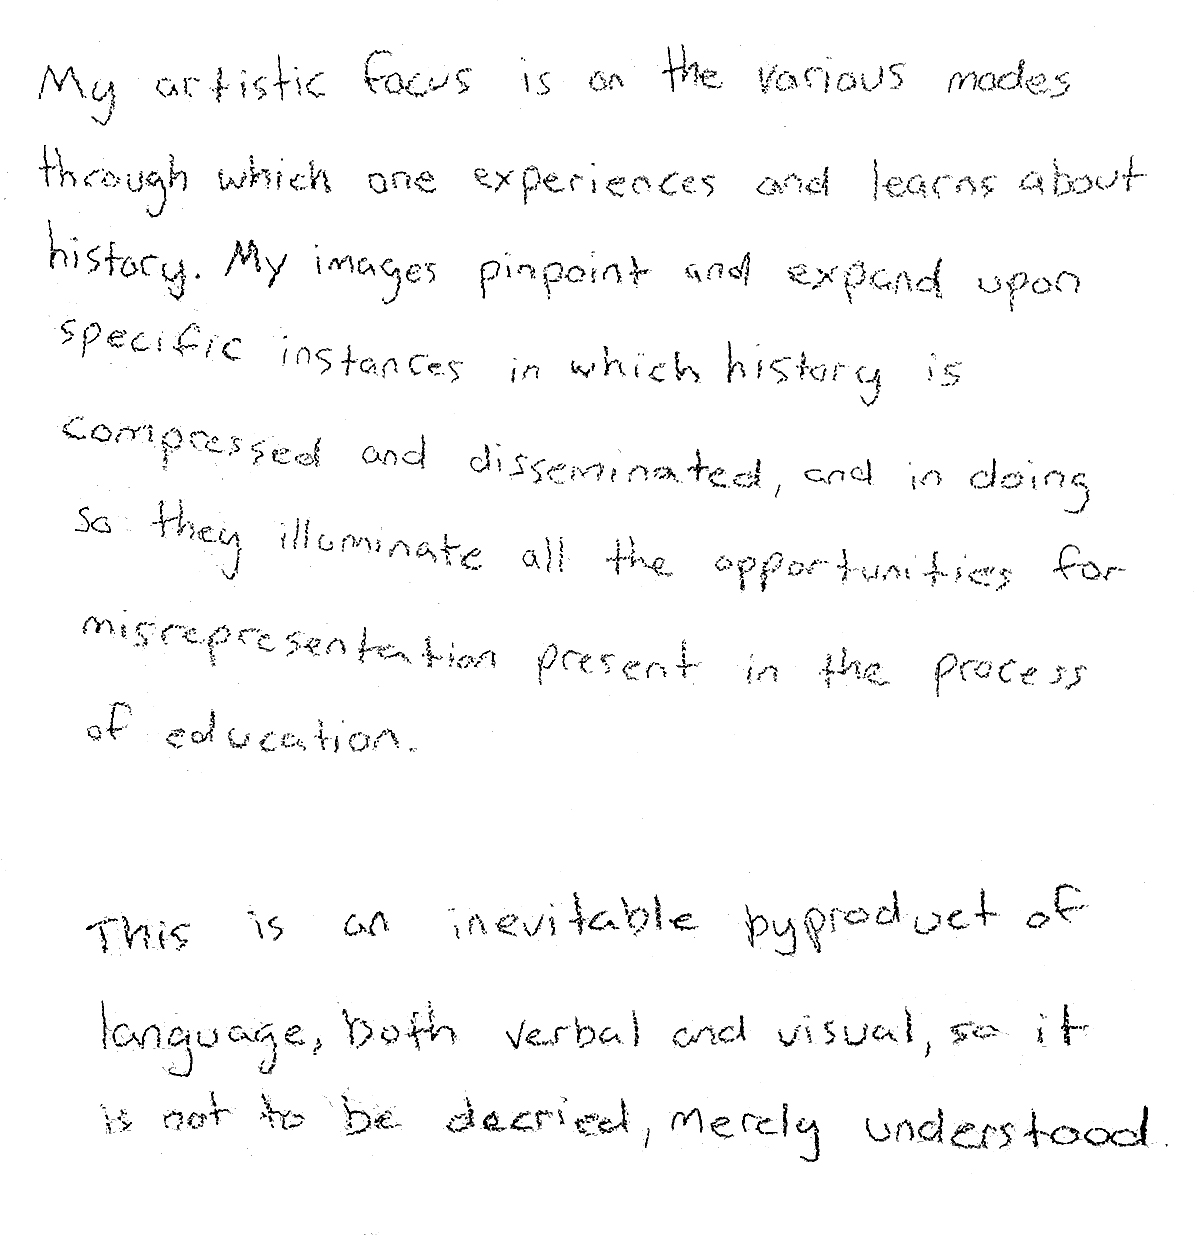 My artistic focus is on the various modes
through which one experiences and learns about
history. My images pinpoint and expand upon
specific instances in which history is
compressed and disseminated, and in doing
so they illuminate all the opportunities for
misrepresentation present in the process
of education.
This is an inevitable byproduct of
language, both verbal and visual, so it
is not to be decried, merely understood.